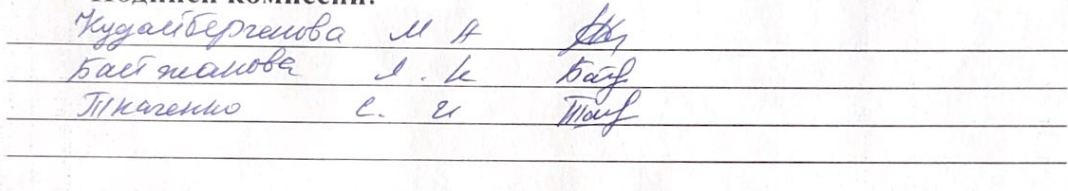 Подписи комиссии:
Кудайбергенова М А
Байжанова Л. К
Ткаченко С. И